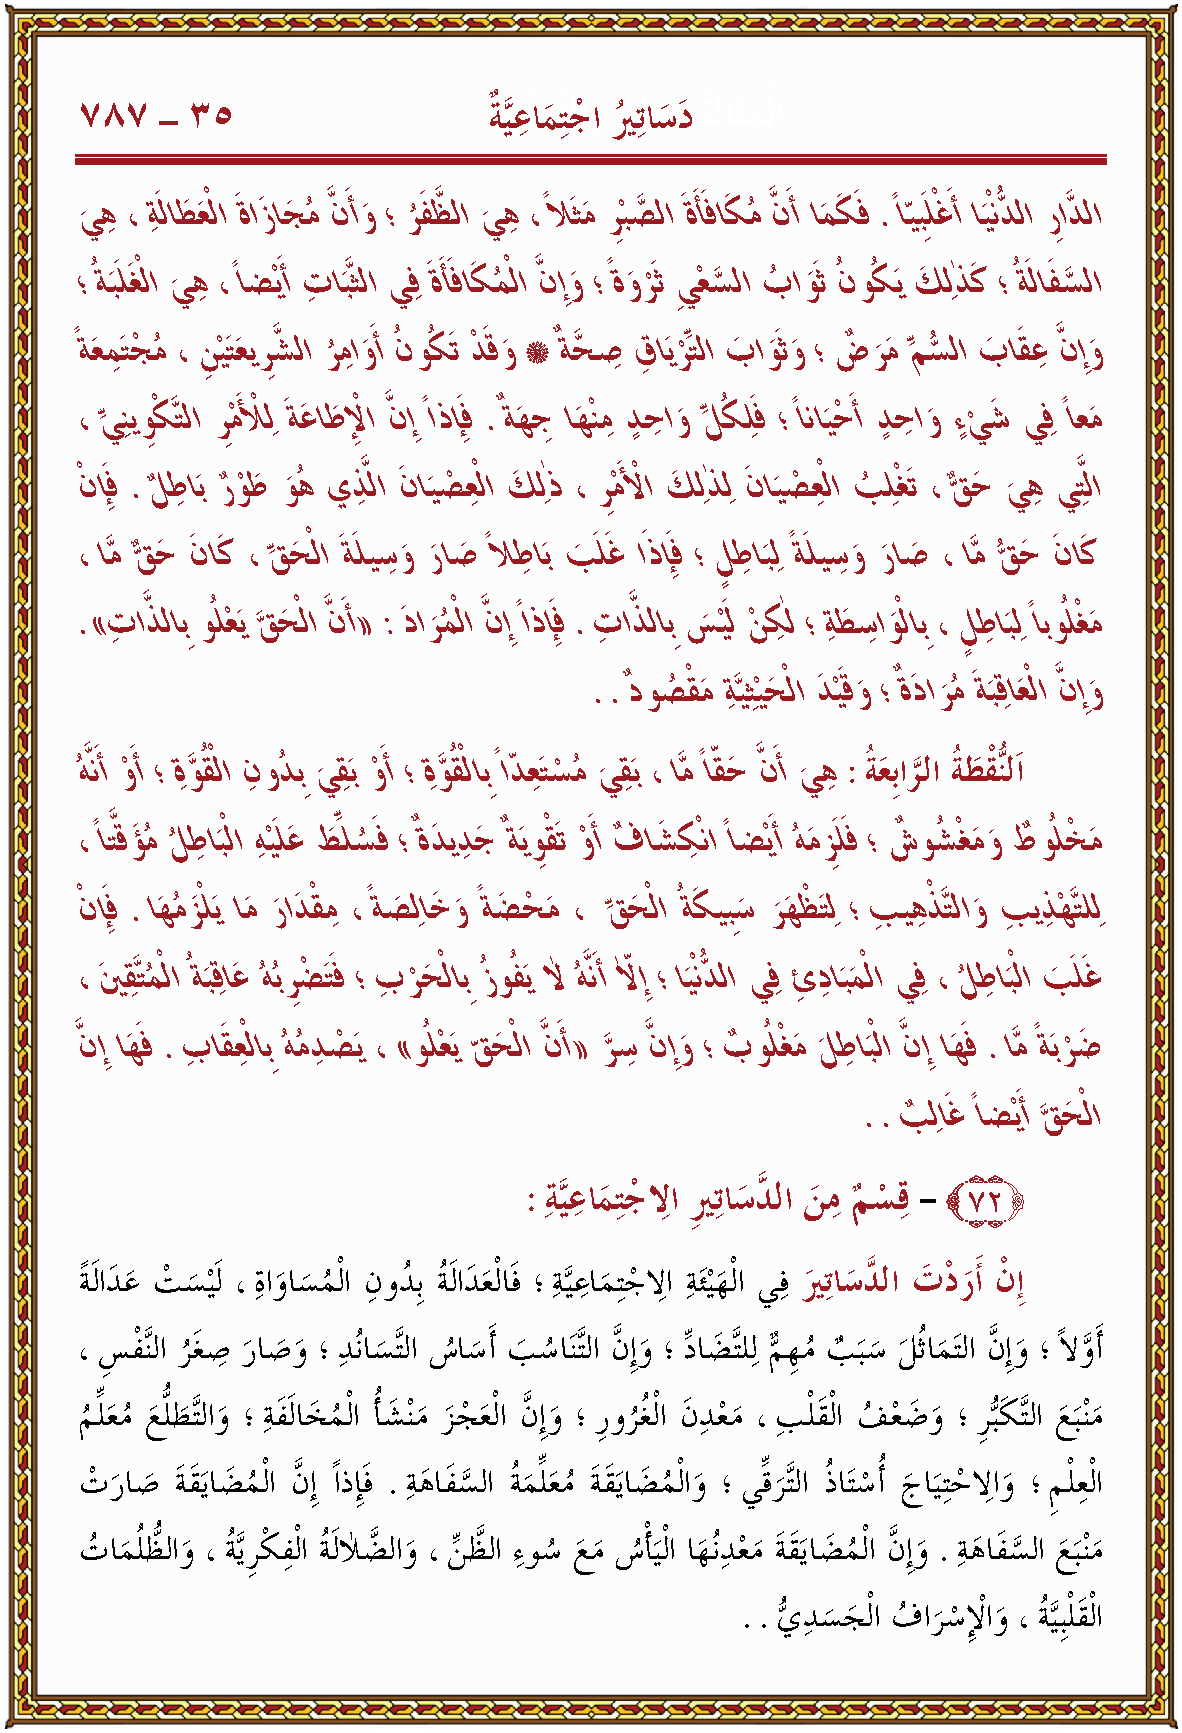 دَسَاتِيرُ اجْتِمَاعِيَّةٌ ٣٥ ــ ٧٨٧
الدَّارِ الدُّنْيَا أَغْلَبِيّاً . فَكَمَا أَنَّ مُكَافَأَةَ الصَّبْرِ مَثَلاً ، هِيَ الظَّفَرُ ؛ وَأَنَّ مُجَازَاةَ الْعَطَالَةِ ، هِيَ
السَّفَالَةُ ؛ كَذٰلِكَ يَكُونُ ثَوَابُ السَّعْيِ ثَرْوَةً ؛ وَإِنَّ الْمُكَافَأَةَ فِي الثَّبَاتِ أَيْضاً ، هِيَ الْغَلَبَةُ ؛
وَإِنَّ عِقَابَ السُّمِّ مَرَضٌ ؛ وَثَوَابَ التِّرْيَاقِ صِحَّةٌ ۞ وَقَدْ تَكُونُ أَوَامِرُ الشَّرِيعَتَيْنِ ، مُجْتَمِعَةً
مَعاً فِي شَيْءٍ وَاحِدٍ أَحْيَاناً ؛ فَلِكُلِّ وَاحِدٍ مِنْهَا جِهَةٌ . فَإِذاً إِنَّ الْإِطَاعَةَ لِلْأَمْرِ التَّكْوِينِيِّ ،
الَّتِي هِيَ حَقٌّ ، تَغْلِبُ الْعِصْيَانَ لِذٰلِكَ الْأَمْرِ ، ذٰلِكَ الْعِصْيَانَ الَّذِي هُوَ طَوْرٌ بَاطِلٌ . فَإِنْ
كَانَ حَقُّ مَّا ، صَارَ وَسِيلَةً لِبَاطِلٍ ؛ فَإِذَا غَلَبَ بَاطِلاً صَارَ وَسِيلَةَ الْحَقِّ ، كَانَ حَقٌّ مَّا ،
مَغْلُوباً لِبَاطِلٍ ، بِالْوَاسِطَةِ ؛ لٰكِنْ لَيْسَ بِالذَّاتِ . فَإِذاً إِنَّ الْمُرَادَ : «أَنَّ الْحَقَّ يَعْلُو بِالذَّاتِ» .
وَإِنَّ الْعَاقِبَةَ مُرَادَةٌ ؛ وَقَيْدَ الْحَيْثِيَّةِ مَقْصُودٌ . .
اَلنُّقْطَةُ الرَّابِعَةُ : هِيَ أَنَّ حَقّاً مَّا ، بَقِيَ مُسْتَعِدّاً بِالْقُوَّةِ ؛ أَوْ بَقِيَ بِدُونِ الْقُوَّةِ ؛ أَوْ أَنَّهُ
مَخْلُوطٌ وَمَغْشُوشٌ ؛ فَلَزِمَهُ أَيْضاً انْكِشَافٌ أَوْ تَقْوِيَةٌ جَدِيدَةٌ ؛ فَسُلِّطَ عَلَيْهِ الْبَاطِلُ مُؤَقَّتاً ،
لِلتَّهْذِيبِ وَالتَّذْهِيبِ ؛ لِتَظْهَرَ سَبِيكَةُ الْحَقِّ ، مَحْضَةً وَخَالِصَةً ، مِقْدَارَ مَا يَلْزَمُهَا . فَإِنْ
غَلَبَ الْبَاطِلُ ، فِي الْمَبَادِئِ فِي الدُّنْيَا ؛ إِلاَّ أَنَّهُ لاَ يَفُوزُ بِالْحَرْبِ ؛ فَتَضْرِبُهُ عَاقِبَةُ الْمُتَّقِينَ ،
ضَرْبَةً مَّا . فَهَا إِنَّ الْبَاطِلَ مَغْلُوبٌ ؛ وَإِنَّ سِرَّ «أَنَّ الْحَقّ يَعْلُو» ، يَصْدِمُهُ بِالْعِقَابِ . فَهَا إِنَّ
الْحَقَّ أَيْضاً غَالِبٌ . .
﴿٧٢﴾ – قِسْمٌ مِنَ الدَّسَاتِيرِ الِاجْتِمَاعِيَّةِ :
إِنْ أَرَدْتَ الدَّسَاتِيرَ فِي الْهَيْئَةِ الِاجْتِمَاعِيَّةِ ؛ فَالْعَدَالَةُ بِدُونِ الْمُسَاوَاةِ ، لَيْسَتْ عَدَالَةً
أَوَّلاً ؛ وَإِنَّ التَمَاثُلَ سَبَبٌ مُهِمٌّ لِلتَّضَادِّ ؛ وَإِنَّ التَّنَاسُبَ أَسَاسُ التَّسَانُدِ ؛ وَصَارَ صِغَرُ النَّفْسِ ،
مَنْبَعَ التَّكَبُّرِ ؛ وَضَعْفُ الْقَلْبِ ، مَعْدِنَ الْغُرُورِ ؛ وَإِنَّ الْعَجْزَ مَنْشَأُ الْمُخَالَفَةِ ؛ وَالتَّطَلُّعَ مُعَلِّمُ
الْعِلْمِ ؛ وَالِاحْتِيَاجَ أُسْتَاذُ التَّرَقِّي ؛ وَالْمُضَايَقَةَ مُعَلِّمَةُ السَّفَاهَةِ . فَإِذاً إِنَّ الْمُضَايَقَةَ صَارَتْ
مَنْبَعَ السَّفَاهَةِ . وَإِنَّ الْمُضَايَقَةَ مَعْدِنُهَا الْيَأْسُ مَعَ سُوءِ الظَّنِّ ، وَالضَّلاَلَةُ الْفِكْرِيَّةُ ، وَالظُّلُمَاتُ
الْقَلْبِيَّةُ ، وَالْإِسْرَافُ الْجَسَدِيُّ . .